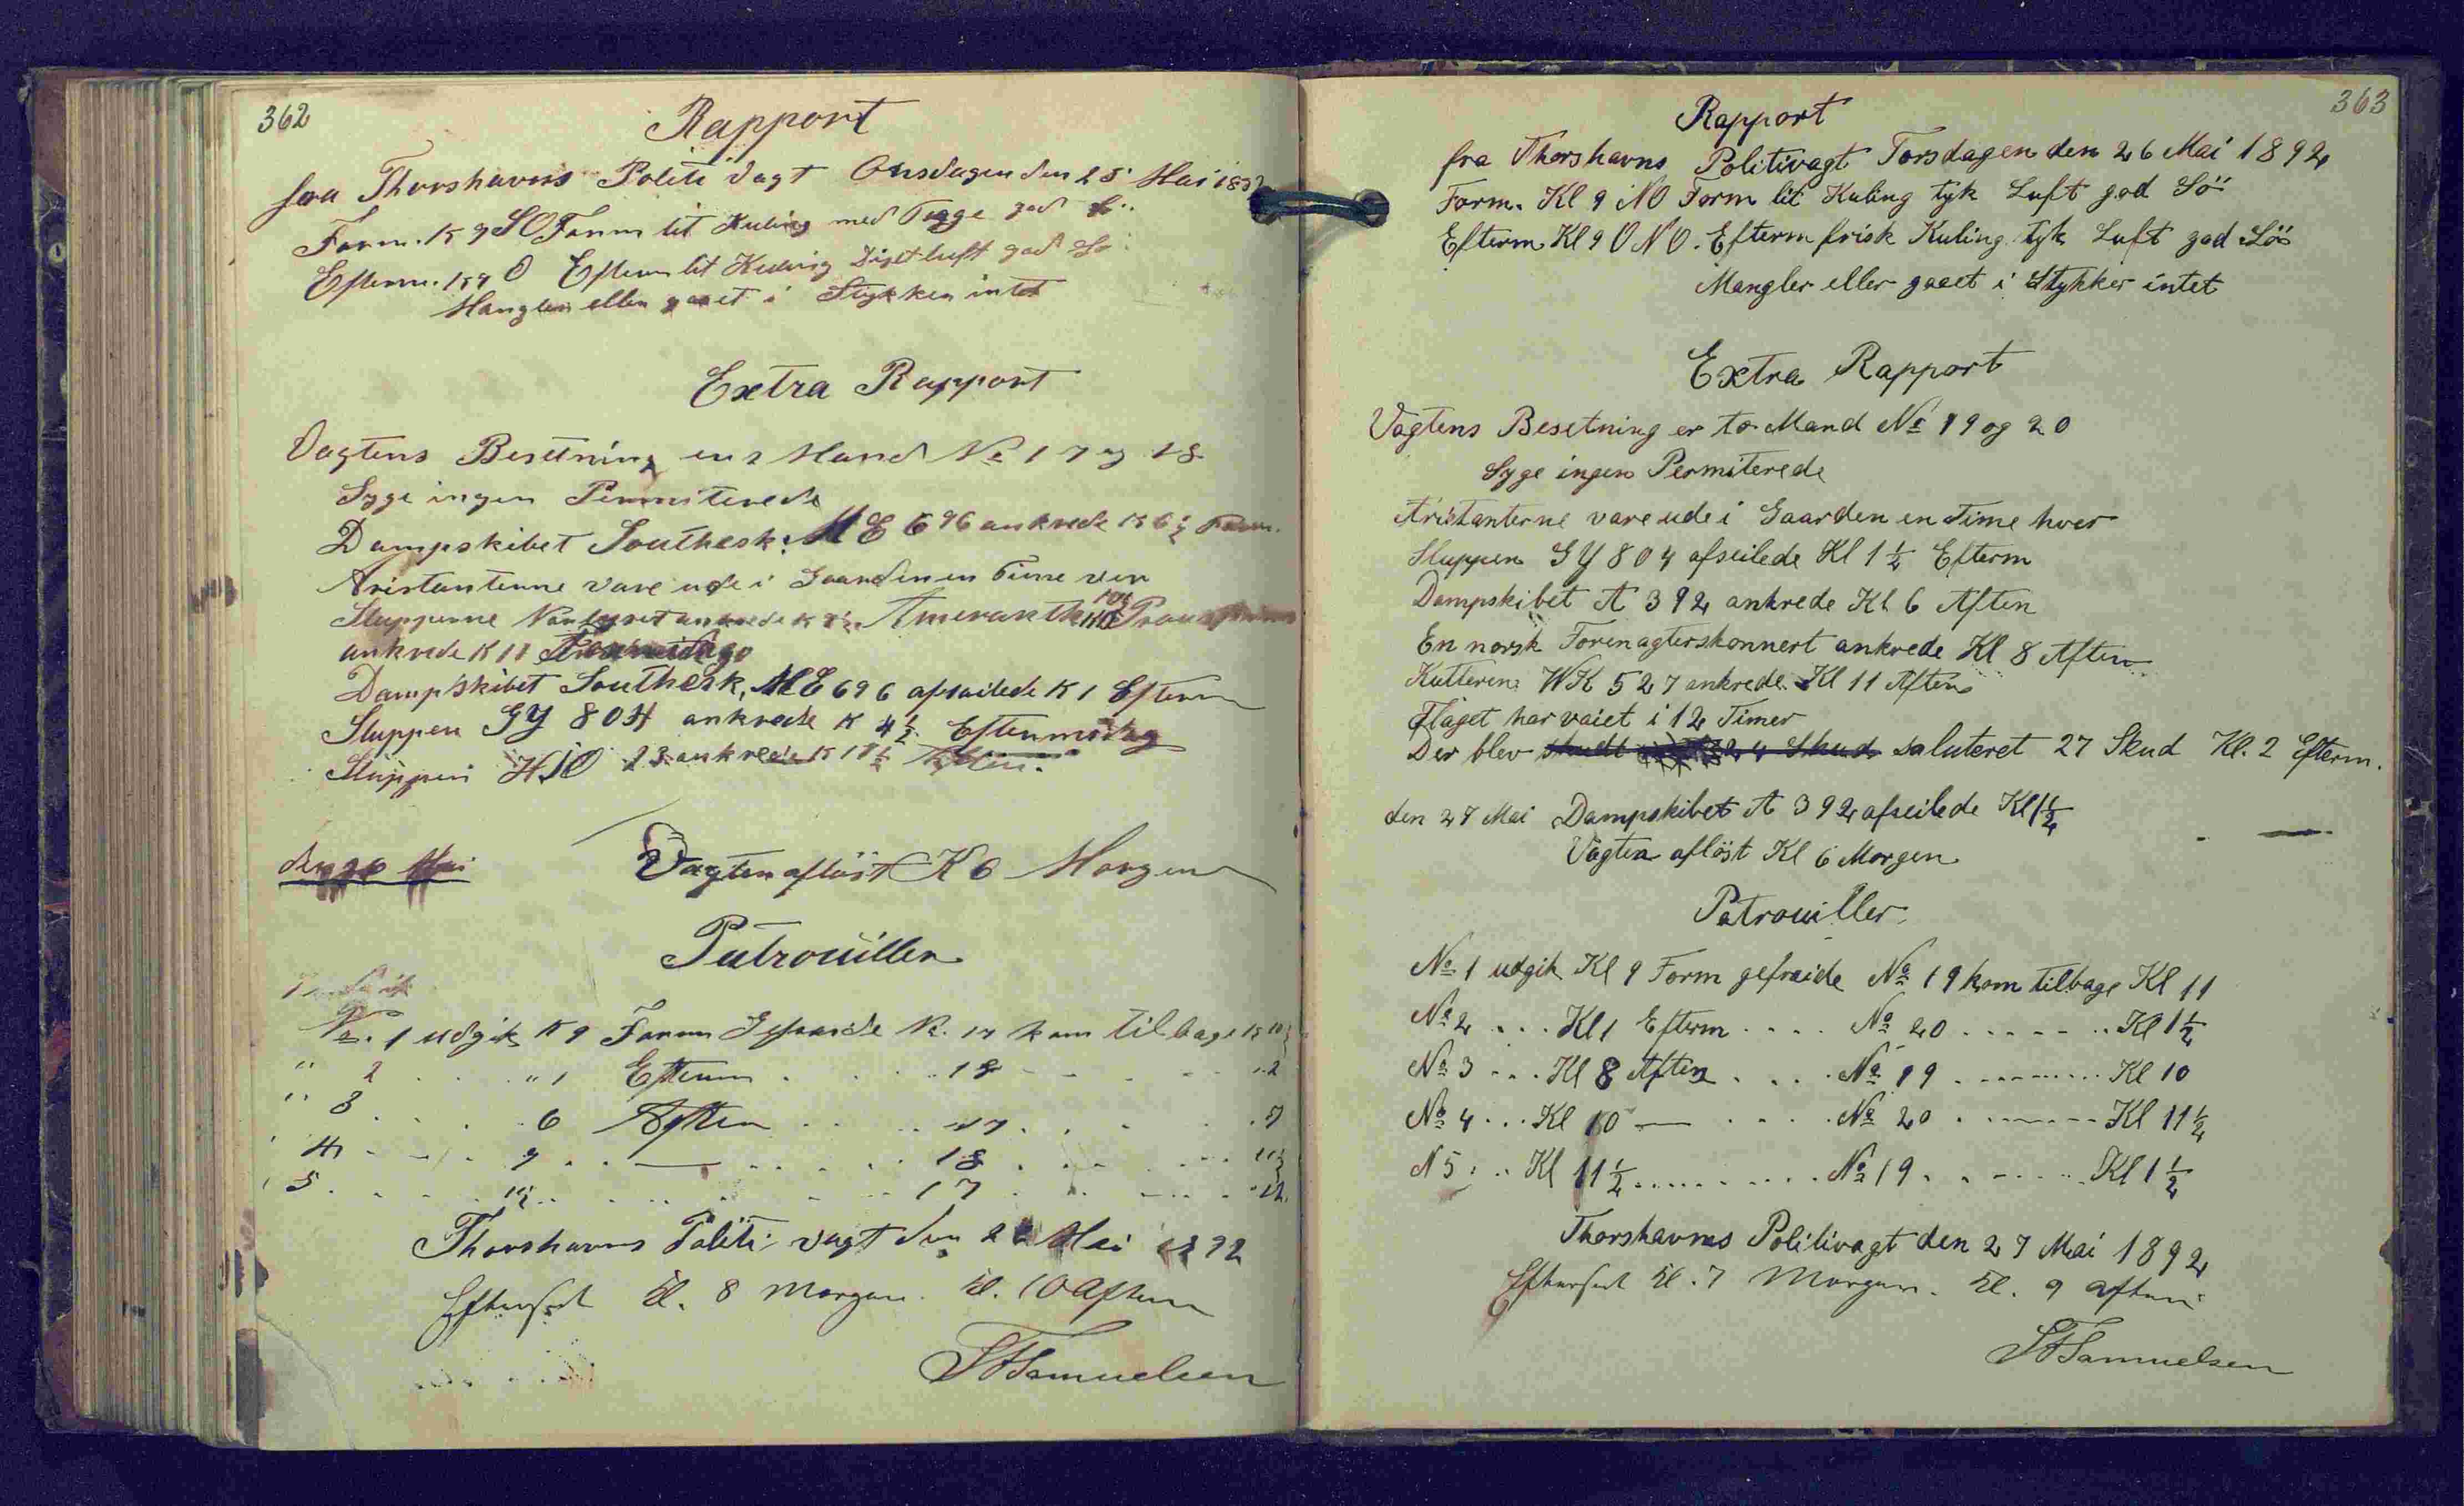 362
Rapport
fra Thorshavns Politi Vagt Onsdagen den 25 Mai 189
Form. K 9 SO Form lit Kuling med Togge god
Efterm. K 9 O Efterm lit Kuling Dist luft god So
Mangler eller gaaet i Stykker intet
Extra Rapport
Vagtens Besetning er 2 Mand No 17 og 18
Syge ingen Permiterede
Dampskibet Southesk ME 696 ankrede K 6 1/2 Form.
Aristanterne vare ude i Gaarden en Time ver
Slupperne ankrede K
ankrede K 11
Dampskibet Southesk, ME 696 afseilede K 1 Efterm
Sluppen GY 804 ankrede K 4 1/2 Eftermidag
Sluppen 23 ankrede K 11 1/2 Aften.
den 26 Mai Vagten aflöst K 6 Morgen
Patrouiller
No. 1 udgik K 9 Form Gefraide N. 17 kom tilbage K 10 1/2
" 2 . . " 1 Efterm . . 18 - - - . . 2
" 3 . . . . 6 Aften . . . 17 . . . . 7
4 - - - 9 . . — . . . . 18 . . . - - 11 1/2
5 . . . . 11 1/2 . . . . . 17 . . . . . 12
Thorshavns Politi vagt den 26 Mai 1892
Efterset Kl. 8 Morgen. Kl. 10 Aften
Samuelsen
363
Rapport
fra Thorshavns Politivagt Torsdagen den 26 Mai 1892
Form. Kl 9 NO Form lit Kuling tyk Luft god Sö
Efterm Kl 9 ONO. Efterm frisk Kuling tyk Luft god Sö
Mangler eller gaaet i Stykker intet
Extra Rapport
Vagtens Besetning er to Mand No 19 og 20
Syge ingen Permiterede
Aristanterne vare ude i Gaarden en Time hver
Sluppen GY 804 afseilede Kl 1 1/2 Efterm
Dampskibet A 392 ankrede Kl 6 Aften
En norsk Forenagterskonnert ankrede Kl 8 Aften
Kutteren WK 527 ankrede Kl 11 Aften
Flaget har vaiet i 12 Timer
Der blev skudt 24 Skud saluteret 27 Skud Kl. 2 Efterm.
den 27 Mai Dampskibet A 392 afseilede Kl 1 1/2
Vagten aflöst Kl 6 Morgen
Patrouiller.
No 1 udgik Kl 9 Form gefraide No 19 kom tilbage Kl 11
No 2 . . . Kl 1 Efterm . . . . No 20 . . . . . . . Kl 1 1/2
No 3 - - . Kl 8 Aften . . . . No 19 . - - - - - - Kl 10
No 4 . . . Kl 10 — . . . . No 20 . - - - - - Kl 11 1/2
N 5 : . . Kl 11 1/2 . . . . . . . . No 19 . . - . . . . Kl 1 1/2
Thorshavns Politivagt den 27 Mai 1892
Efterset Kl. 7 Morgen. Kl. 9 aften
Samuelsen